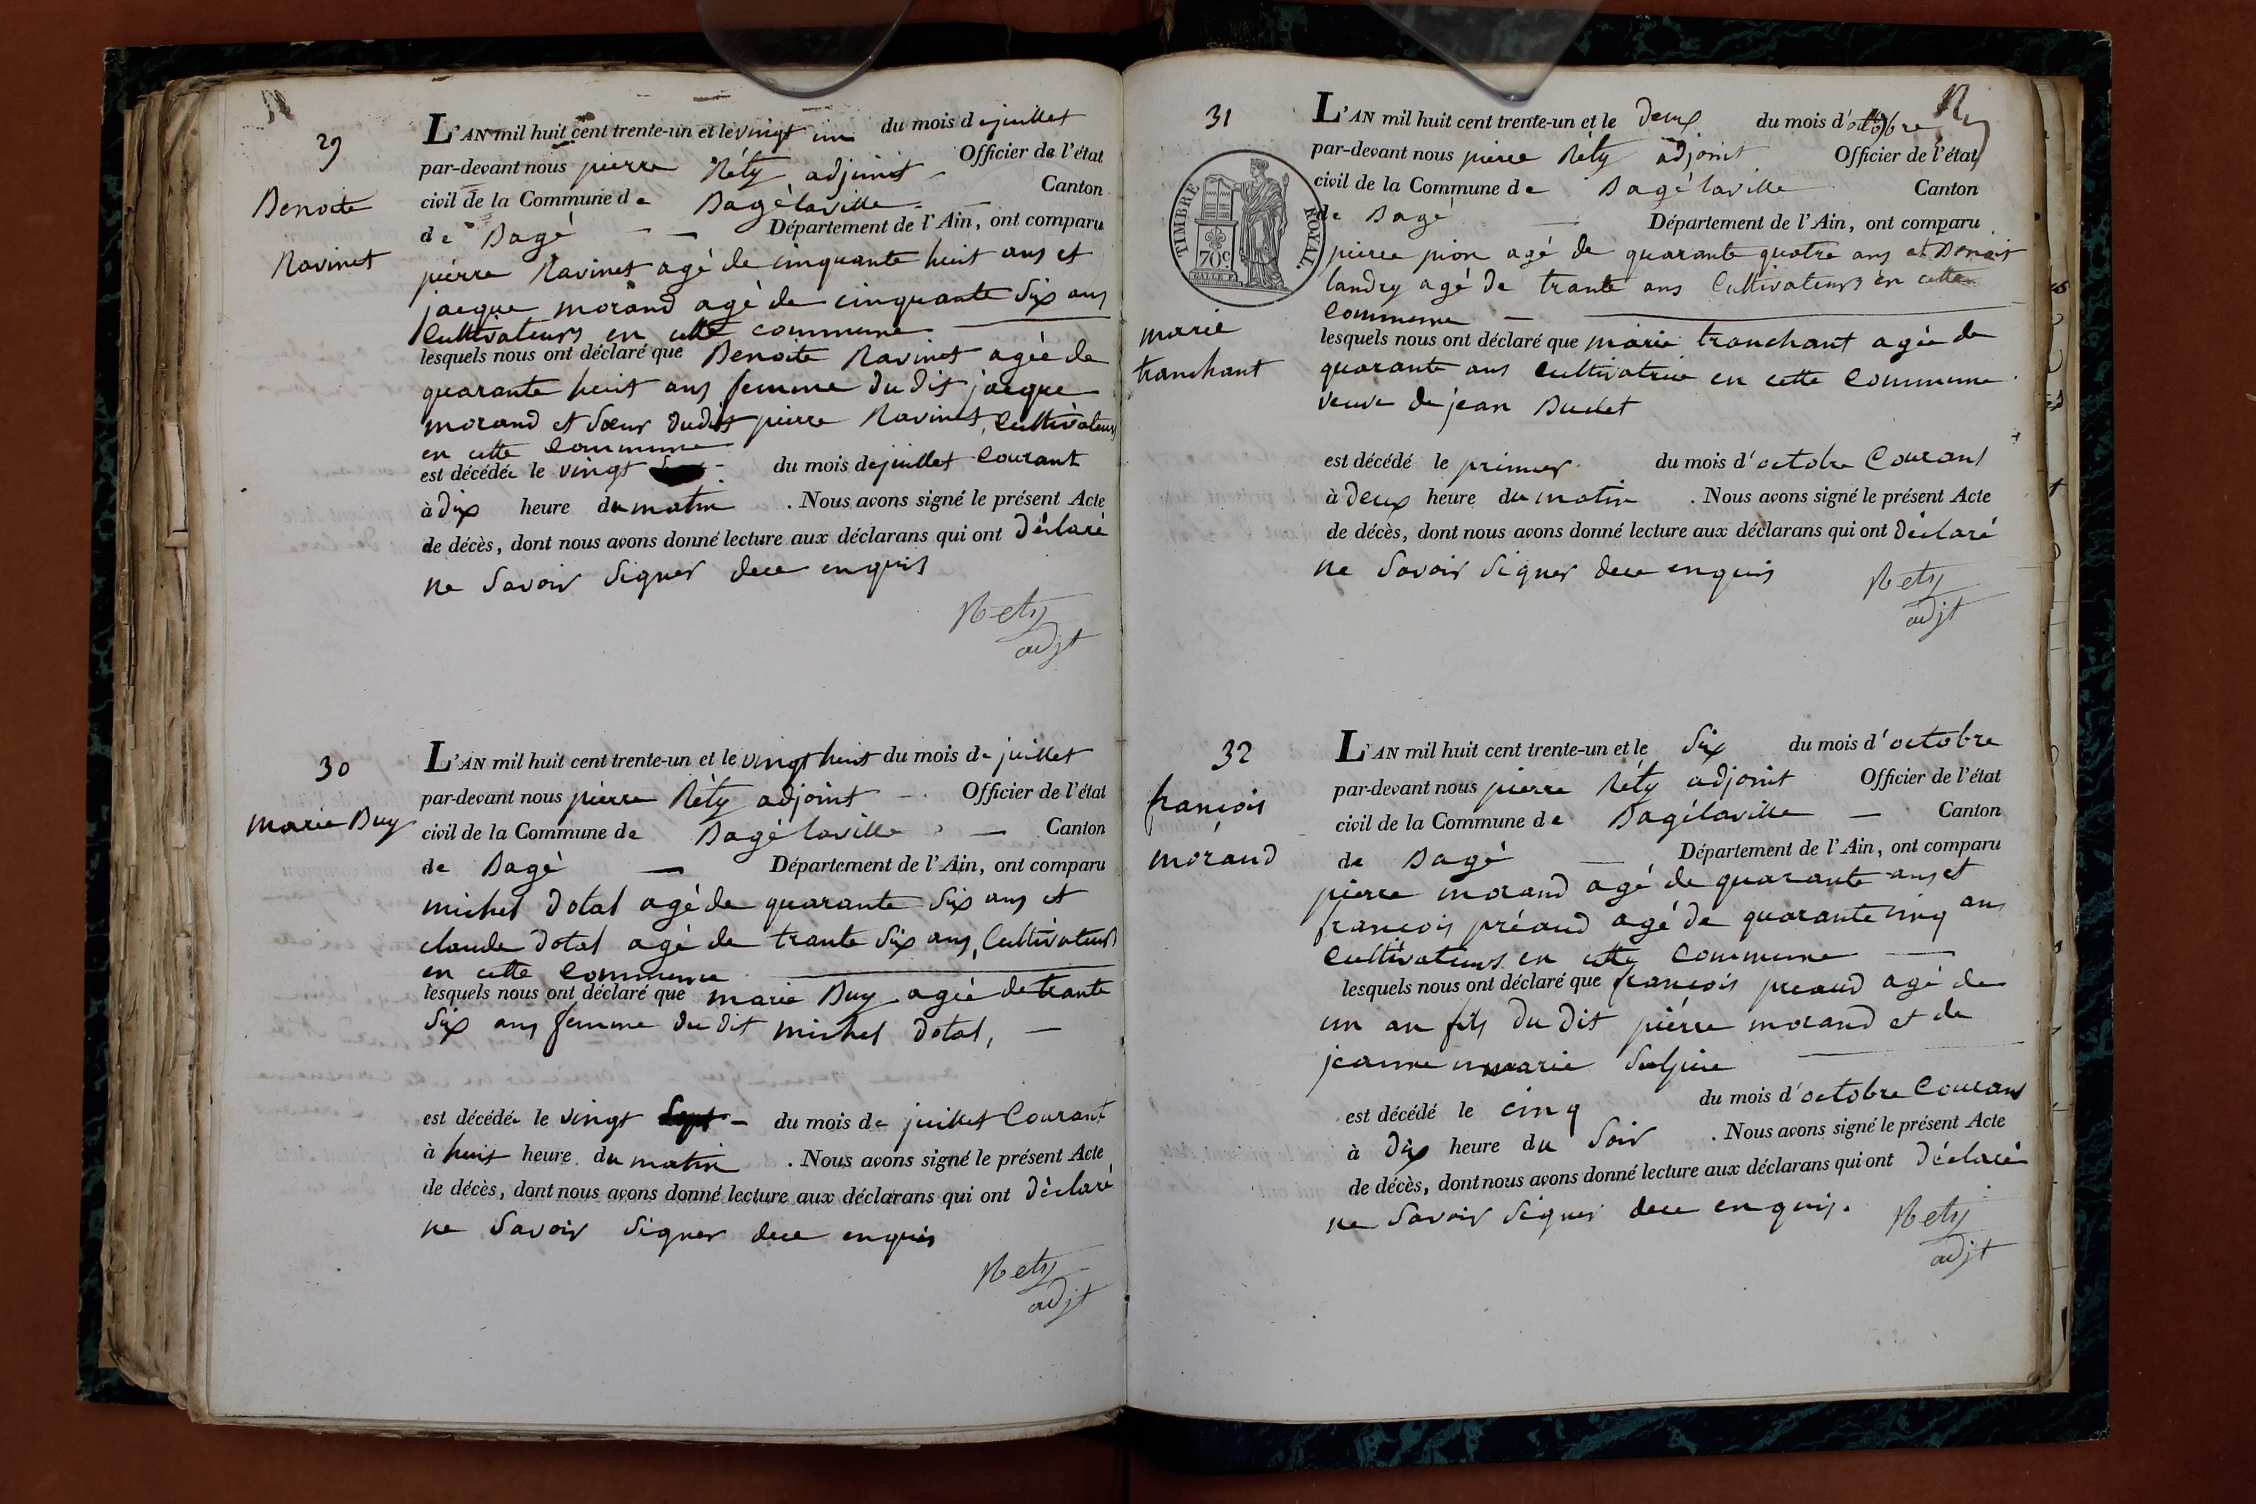 29
Benoite
Ravinet
L'AN mil huit cent trente-un et le vingt un du mois de juillet
par-devant nous pierre Réty adjoint Officier de l'état
civil de la Commune de Bagélaville Canton
de Bagé Département de l'Ain, ont comparu
pierre Ravinet agé de cinquante huit ans et
jacque morand agé de cinquante Six ans
Cultivateurs en cette commune
lesquels nous ont déclaré que Benoite Ravinet agée de
quarante huit ans femme du dit jacque
morand et Sœur dudit pierre Ravinet, Cultivateurs
en cette Commune
est décédée le vingt du mois de juillet Courant
à dix heure du matin . Nous avons signé le présent Acte
de décès, dont nous avons donné lecture aux déclarans qui ont déclaré
ne Savoir Signer dece enquis
Rety
adjt
30
marie Buy
L'AN mil huit cent trente-un et le vingt huit du mois de juillet
par-devant nous pierre Réty adjoint Officier de l'état
civil de la Commune de Bagélaville Canton
de Bagé Département de l'Ain, ont comparu
michel dotal agé de quarante Six ans et
claude dotal agé de trante Six ans, Cultivateurs
en cette Commune
lesquels nous ont déclaré que marie Buy agée de trante
Six ans femme du dit michel dotal,
est décédée le vingt Sept du mois de juillet Courant
à huit heure du matin . Nous avons signé le présent Acte
de décès, dont nous avons donné lecture aux déclarans qui ont déclaré
ne Savoir Signer dece enquis
Rety
adjt
31
TIMBRE ROYAL.
70c
marie
tranchant
L'AN mil huit cent trente-un et le deux du mois d'octobre
par-devant nous pierre Réty adjoint Officier de l'état
civil de la Commune de Bagélaville Canton
de Bagé Département de l'Ain, ont comparu
pierre pion agé de quarante quatre ans et Benoit
landry agé de trante ans Cultivateurs en cette
Commune
lesquels nous ont déclaré que marie tranchant agée de
quarante ans cultivatrice en cette Commune
veuve de jean Budet
est décédé le primier du mois d'octobre Courant
à deux heure du matin . Nous avons signé le présent Acte
de décès, dont nous avons donné lecture aux déclarans qui ont déclaré
ne Savoir Signer dece enquis
Rety
adjt
32
françois
morand
L'AN mil huit cent trente-un et le Six du mois d'octobre
par-devant nous pierre Réty adjoint Officier de l'état
civil de la Commune de Bagélaville Canton
de Bagé Département de l'Ain, ont comparu
pierre morand agé de quarante ans et
francois préaud agé de quarante cinq ans
Cultivateurs en cette Commune
lesquels nous ont déclaré que francois preaud agé de
un an fils du dit pierre morand et de
jeanne marie Sulpice
est décédé le cinq du mois d'octobre Courant
à dix heure du Soir . Nous avons signé le présent Acte
de décès, dont nous avons donné lecture aux déclarans qui ont déclaré
ne Savoir Signer dece enquis.
Rety
adjt